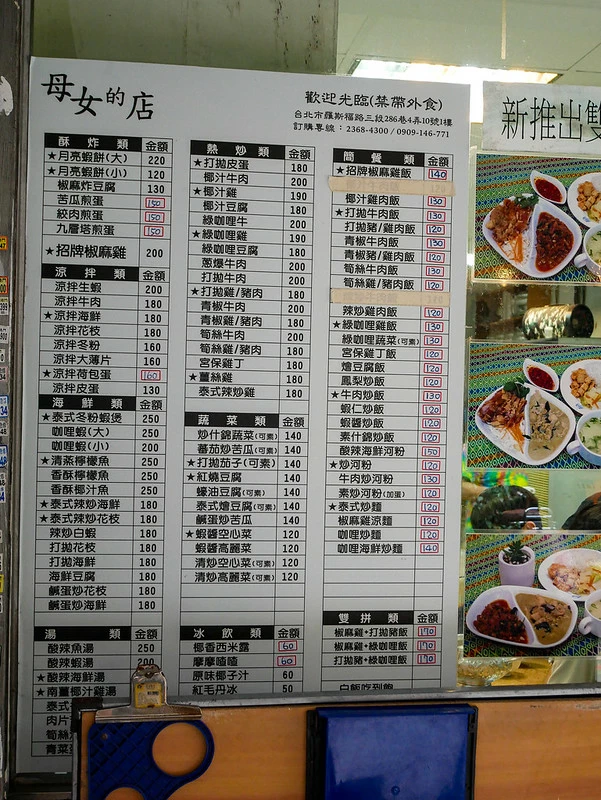 母女的店
歡迎光臨(禁帶外食)
台北市羅斯福路三段286巷4弄10號1樓
訂購專線：2368-4300 / 0909-146-771
酥炸類 金額
★月亮蝦餅(大) 220
★月亮蝦餅(小) 120
椒麻炸豆腐 130
苦瓜煎蛋 150
絞肉煎蛋 150
九層塔煎蛋 150
★招牌椒麻雞 200
涼拌類 金額
涼拌生蝦 200
涼拌牛肉 180
★涼拌海鮮 180
涼拌花枝 180
涼拌冬粉 160
涼拌大薄片 160
★涼拌荷包蛋 160
涼拌皮蛋 130
海鮮類 金額
★泰式冬粉蝦煲 250
咖哩蝦(大) 250
咖哩蝦(小) 200
★清蒸檸檬魚 250
香酥檸檬魚 250
香酥椰汁魚 250
★泰式辣炒海鮮 180
★泰式辣炒花枝 180
辣炒白蝦 180
打拋花枝 180
打拋海鮮 180
海鮮豆腐 180
鹹蛋炒花枝 180
鹹蛋炒海鮮 180
湯類 金額
酸辣魚湯 250
酸辣蝦湯 200
★酸辣海鮮湯
★南薑椰汁雞湯
泰式
肉片
筍絲
青菜
熱炒類 金額
★打拋皮蛋 180
椰汁牛肉 200
★椰汁雞 190
椰汁豆腐 180
綠咖哩牛 200
★綠咖哩雞 190
綠咖哩豆腐 180
蔥爆牛肉 200
打拋牛肉 200
★打拋雞/豬肉 180
青椒牛肉 200
青椒雞/豬肉 180
筍絲牛肉 200
筍絲雞/豬肉 180
宮保雞丁 180
★薑絲雞 180
泰式辣炒雞 180
蔬菜類 金額
炒什錦蔬菜(可素) 140
蕃茄炒苦瓜(可素) 140
★打拋茄子(可素) 140
★紅燒豆腐 140
蠔油豆腐(可素) 140
泰式燴豆腐(可素) 140
鹹蛋炒苦瓜 140
★蝦醬空心菜 120
蝦醬高麗菜 120
清炒空心菜(可素) 120
清炒高麗菜(可素) 120
冰飲類 金額
椰香西米露 60
摩摩喳喳 60
原味椰子汁 60
紅毛丹冰 50
簡餐類 金額
★招牌椒麻雞飯 140
椰汁雞肉飯 130
★打拋牛肉飯 130
打拋豬/雞肉飯 120
青椒牛肉飯 130
青椒豬/雞肉飯 120
筍絲牛肉飯 130
筍絲雞/豬肉飯 120
辣炒雞肉飯 120
★綠咖哩雞飯 130
綠咖哩蔬菜(可素) 120
宮保雞丁飯 120
燴豆腐飯 120
鳳梨炒飯 120
★牛肉炒飯 130
蝦仁炒飯 120
蝦醬炒飯 120
素什錦炒飯 120
酸辣海鮮河粉 150
★炒河粉 120
牛肉炒河粉 130
素炒河粉(加蛋) 120
★泰式炒麵 120
椒麻雞涼麵 120
咖哩炒麵 120
咖哩海鮮炒麵 140
雙拼類 金額
椒麻雞+打拋豬飯 170
椒麻雞+綠咖哩飯 170
打拋豬+綠咖哩飯 170
白飯吃到飽
新推出雙